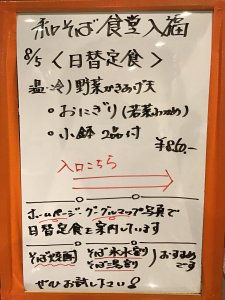 和そば食堂入福
8/5 〈日替定食〉
温・冷)野菜かきあげ天
・おにぎり(若菜わかめ)
・小鉢 2品付
¥860.-
入口こちら
ホームページ・グーグルマップ写真で
日替定食を案内しています
そば焼酎 そば水水割り
そば湯割り
おすすめです
ぜひお試し下さい